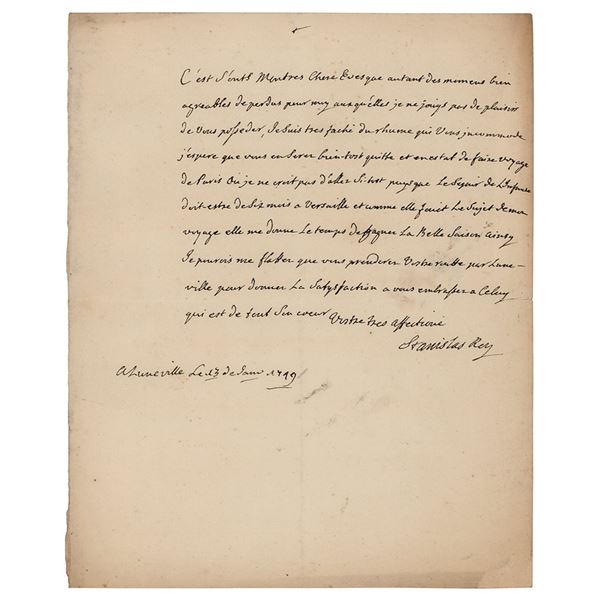 C'est Sont Montres Cheré Evesque autant des momens bien
agreables de perdus pour moy auxquelles je ne jouys pas de plaisir
de Vous posseder, Je suis tres faché du rhume qui Vous incommode
j'espere que vous en serer bien-tost quitte et en estat de faire voyage
de Paris Ou je ne croit pas d'aller Si tost puisque Le Sejour de L'infante
doit estre de Six mois a Versaille et comme elle fouit Le Sujet de mon
voyage elle me donne Le temps de gagner La Belle Saison ainsy
Je pourois me flatter que vous prenderer Vostre rutte par Lune-
ville pour donner La Satisfaction a vous embrasser a Celuy
qui est de tout Son coeur Vostre tres affectioné
Stanislas Roy
A Luneville Le 13 de Janv 1749